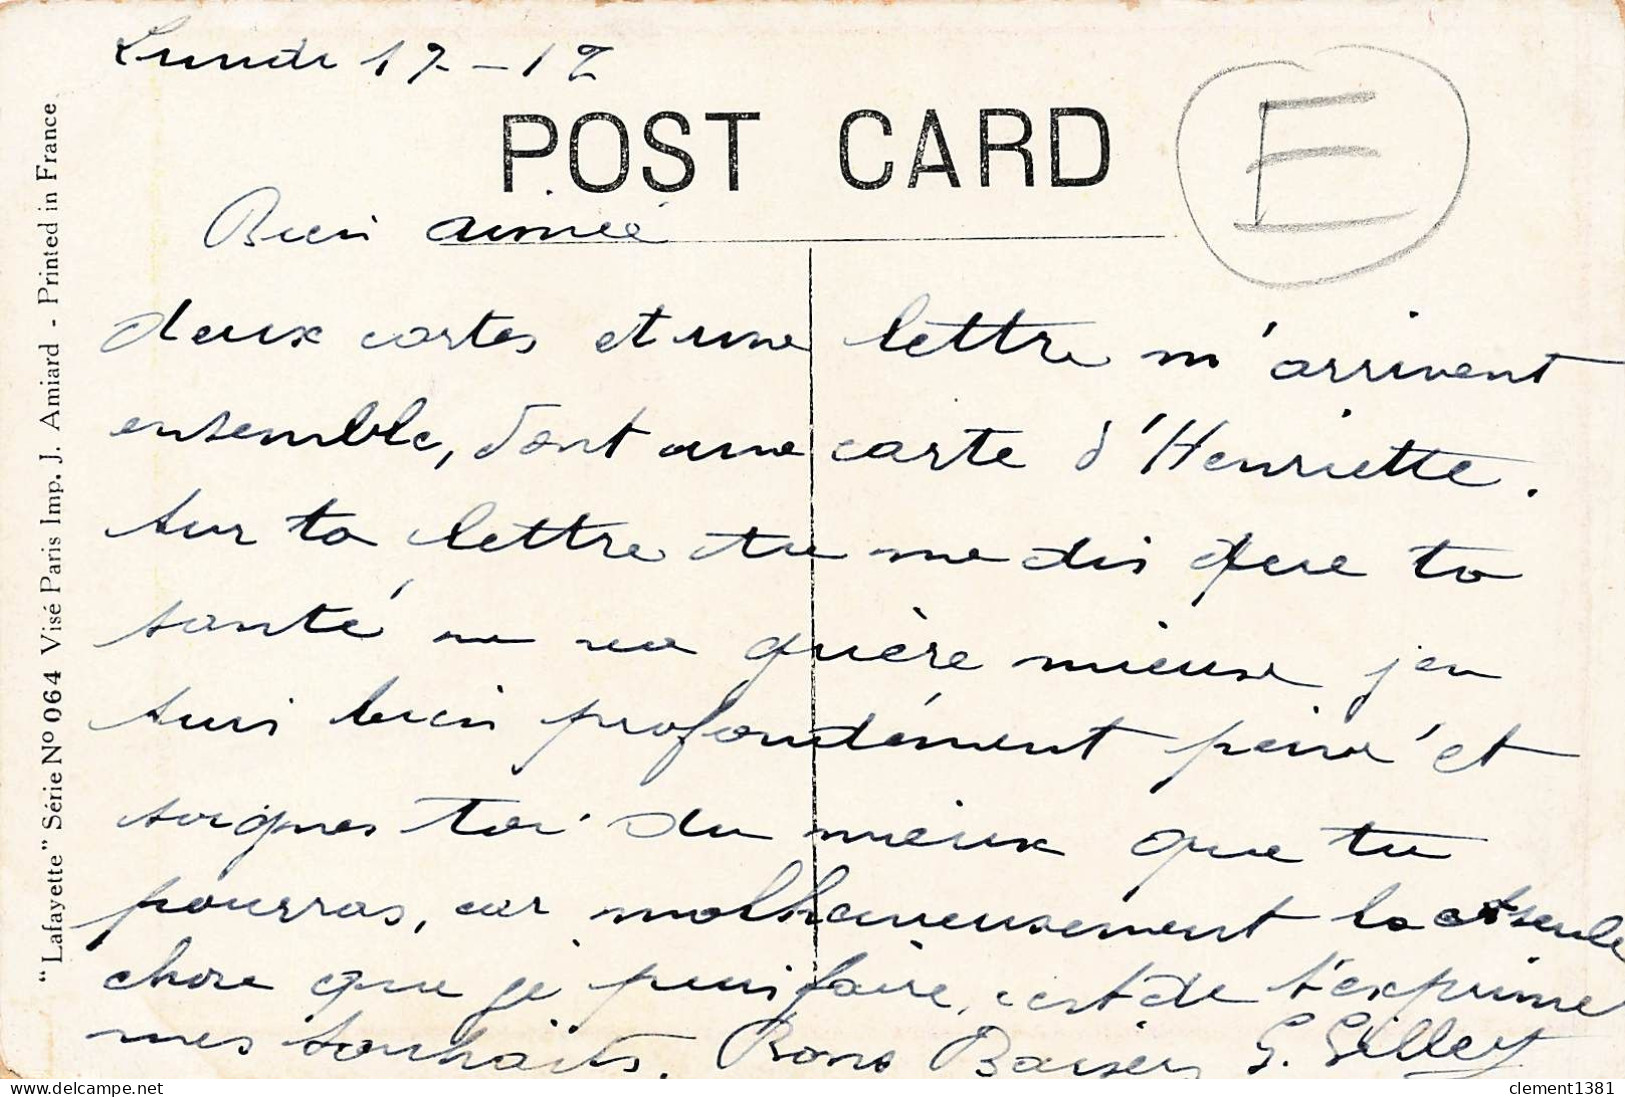 Lundi 17-12
POST CARD
E
Bien aimée
deux cartes et une lettre m'arrivent
ensemble, dont une carte d'Henriette.
sur ta lettre tu me dis que ta
santé ne va guère mieux j'en
suis bien profondément peiné et
soignes toi du mieux que tu
pourras, car malheureusement la seule
chose que je puis faire, c'est de t'exprimer
mes souhaits. Bons Baisers G. Gillet
"Lafayette" Série Nº 064 Visé Paris Imp. J. Amiard - Printed in France
clement1381